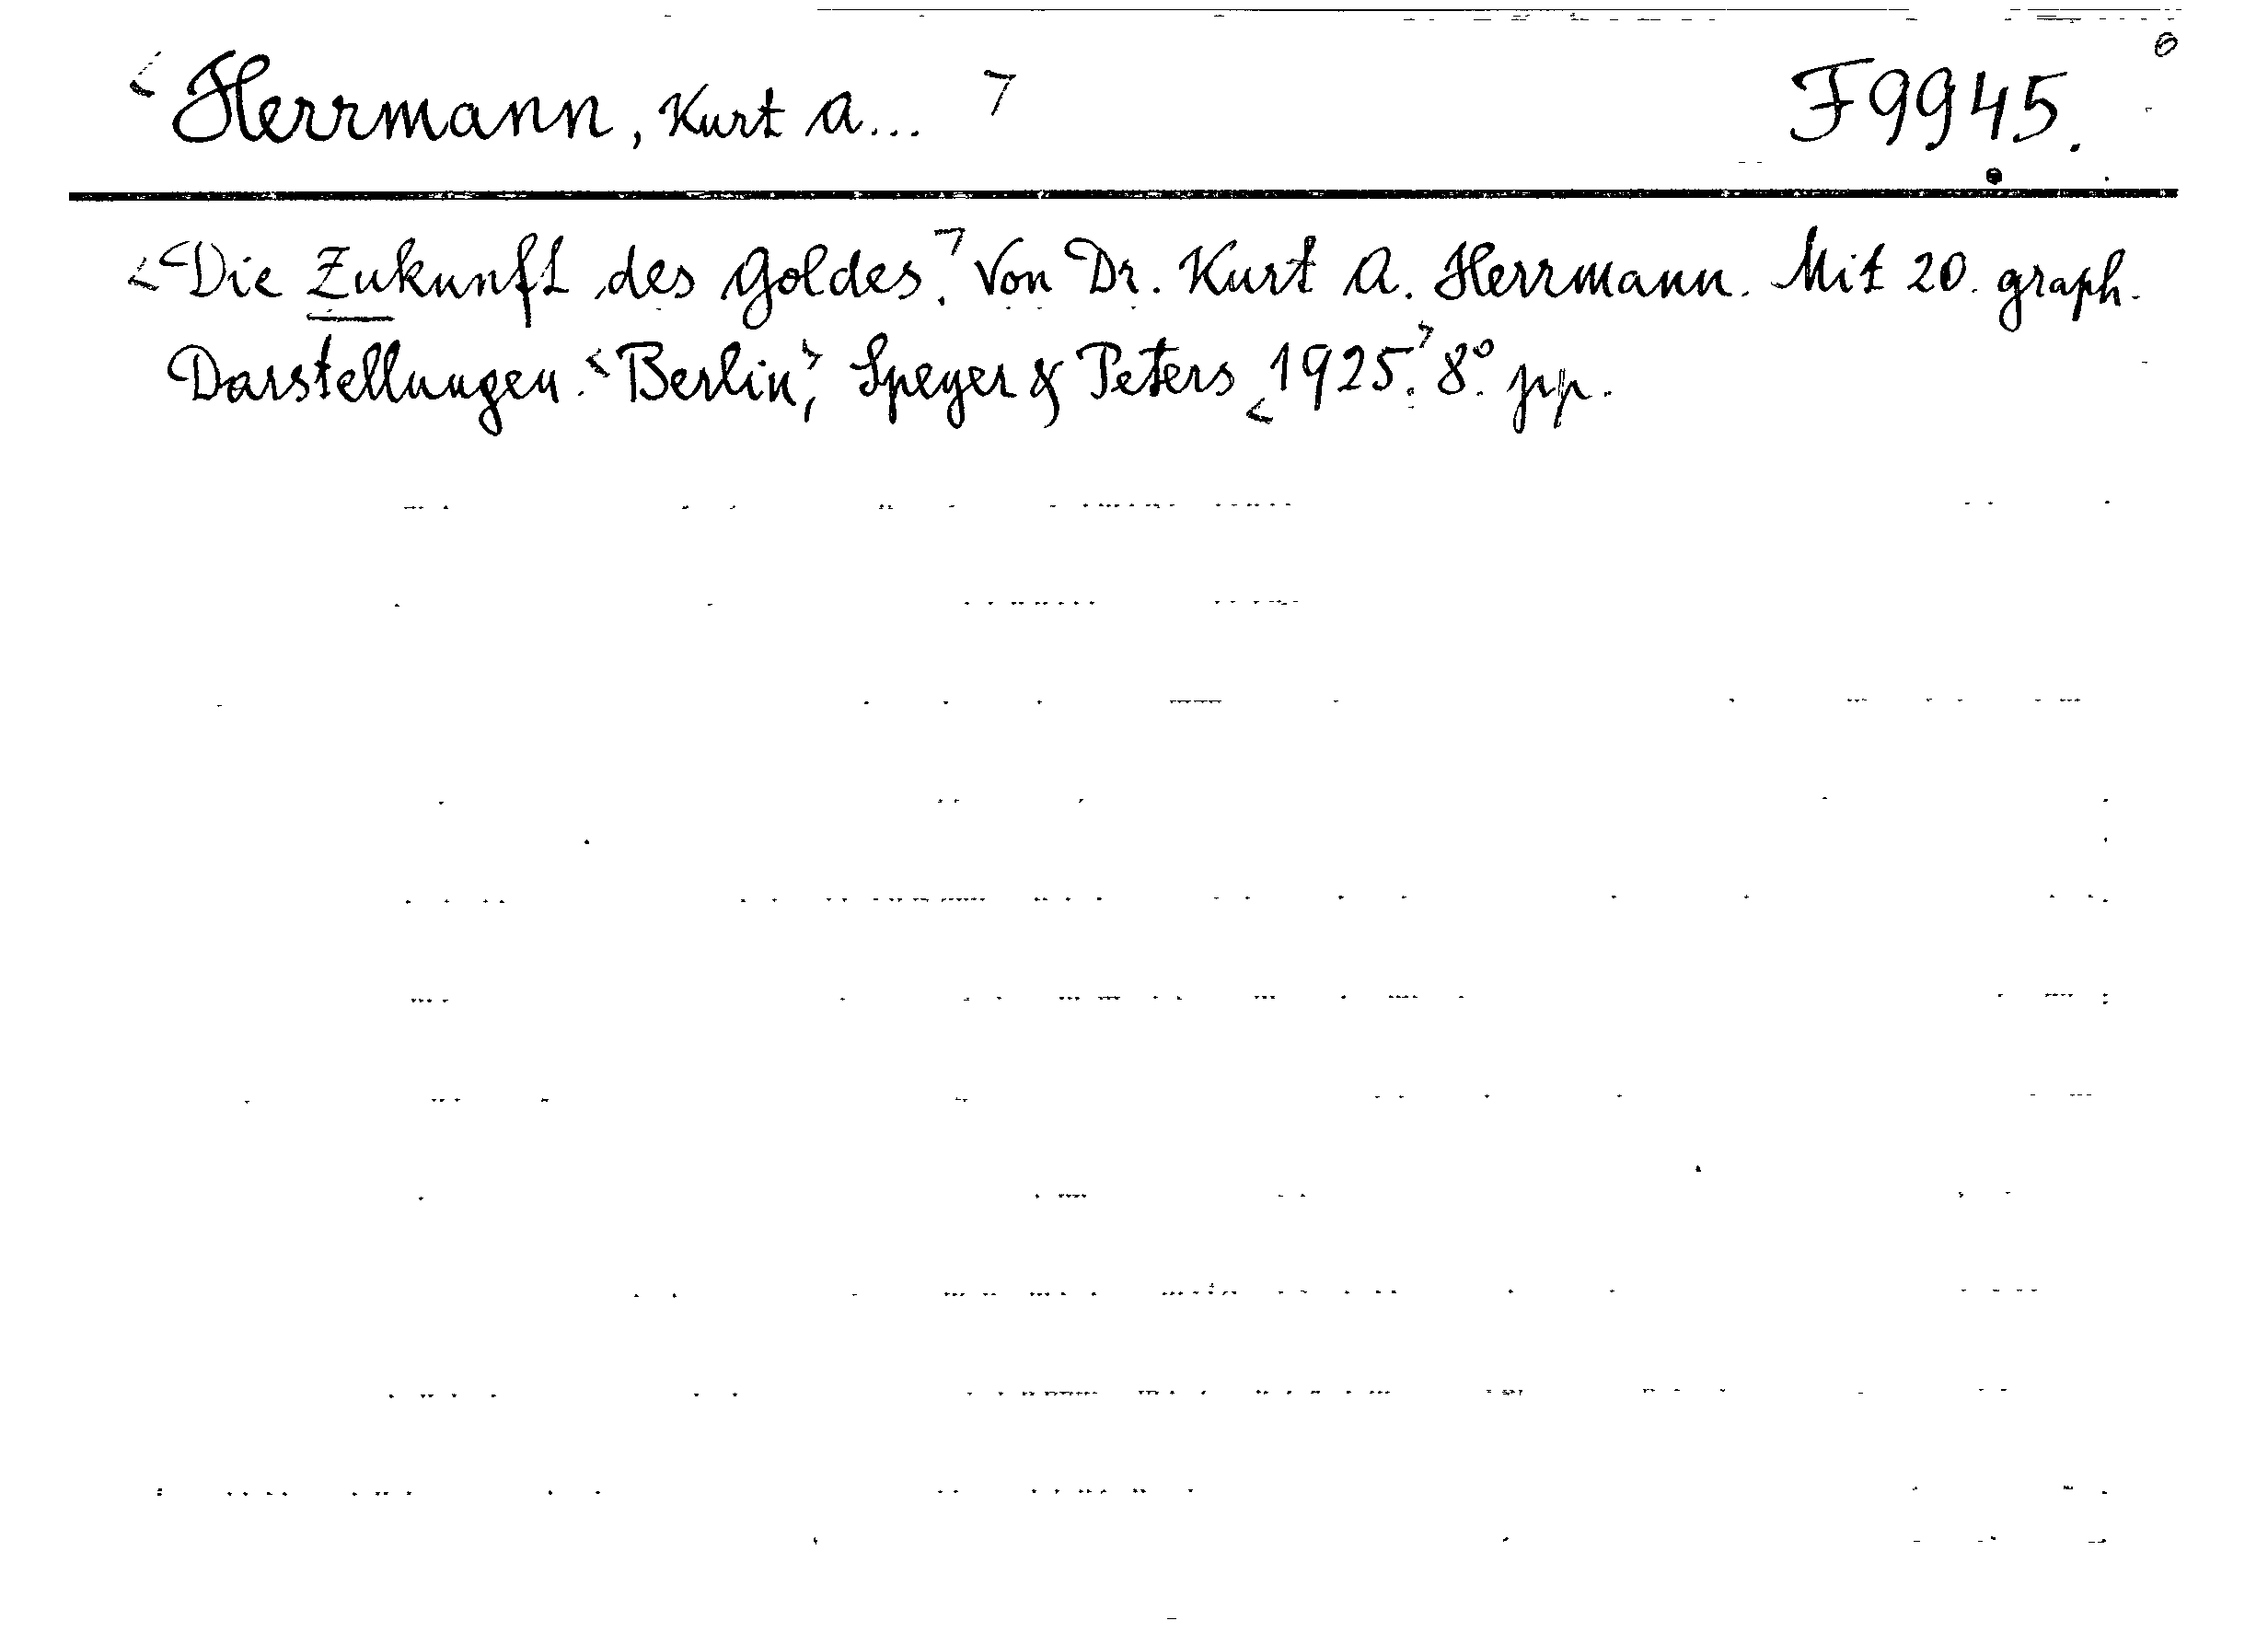 <Herrmann, Kurt A...> F9945.
<Die Zukunft des Goldes.> Von Dr. Kurt A. Herrmann. Mit 20. graph.
Darstellungen. <Berlin>, Speyer & Peters <1925.> 8° pp.